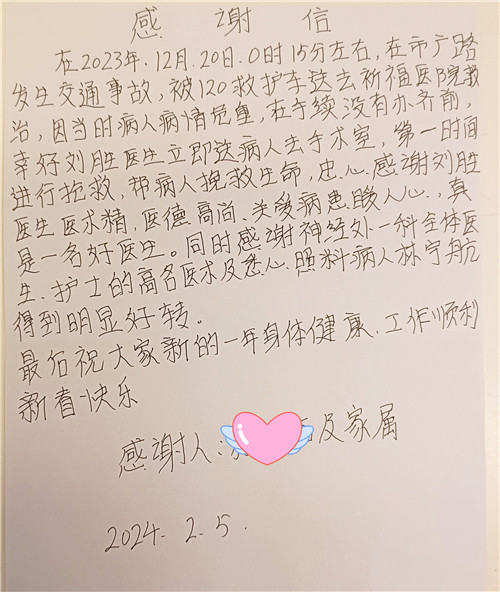 感谢信
在2023年.12月.20日.0时15分左右,在市广路
发生交通事故,被120救护车送去祈福医院救
治,因当时病人病情危重,在手续没有办齐前,
幸好刘胜医生立即送病人去手术室,第一时间
进行抢救,帮病人挽救生命,忠心感谢刘胜
医生医术精,医德高尚、关爱病患暖人心.,真
是一名好医生。同时感谢神经外一科全体医
生、护士的高名医术及悉心照料病人林宇航
得到明显好转。
最后祝大家新的一年身体健康、工作顺利
新春快乐
感谢人:及家属
2024.2.5.